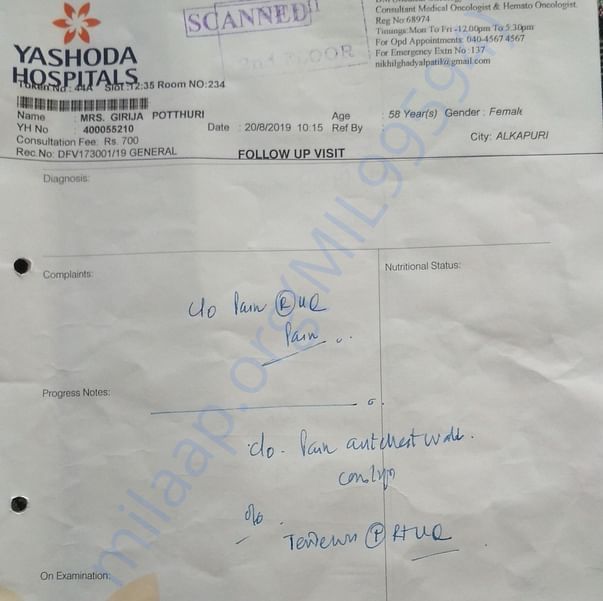 SCANNED
2nd FLOOR
Consultant Medical Oncologist & Hemato Oncologist
Reg No:68974
Timings:Mon To Fri -12.00pm To 5:30pm
For Opd Appointments: 040-4567 4567
For Emergency Extn No :137
nikhilghadyalpatil@gmail.com
YASHODA
HOSPITALS
Token No : 44A Slot :12:35 Room NO:234
Name : MRS. GIRIJA POTTHURI Age : 58 Year(s) Gender : Female
YH No : 400055210 Date : 20/8/2019 10.15 Ref By :
Consultation Fee: Rs. 700 City: ALKAPURI
Rec.No: DFV173001/19 GENERAL FOLLOW UP VISIT
Diagnosis:
Complaints:
Nutritional Status:
c/o Pain Ⓡ UQ
Pain
Progress Notes:
c/o. Pain ant chest wall.
o/e
Ⓟ Rt UQ
On Examination:
milaap.org/MIL99591